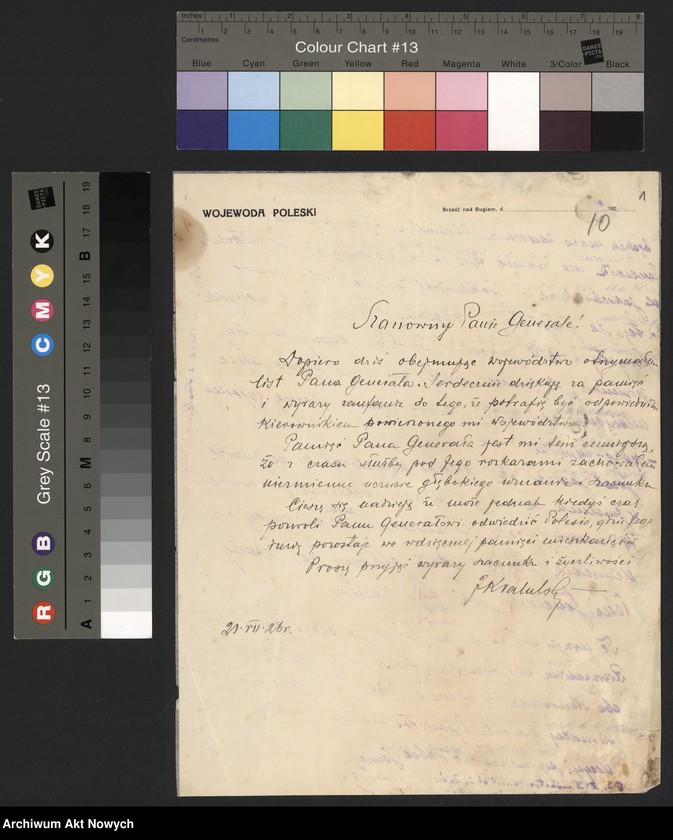 Inches 1 2 3 4 5 6 7 8
Centimetres 1 2 3 4 5 6 7 8 9 10 11 12 13 14 15 16 17 18 19
Colour Chart #13
DANES PICTA
Blue Cyan Green Yellow Red Magenta White 3/Color Black
Grey Scale #13
DANES PICTA
R G B C M Y K
A 1 2 3 4 5 6 M 8 9 10 11 12 13 14 15 B 17 18 19
1
WOJEWODA POLESKI
Brześć nad Bugiem, d. 192
10
Szanowny Panie Generale!
Dopiero dziś obejmując województwo otrzymałem
list Pana Generała. Serdecznie dziękuję za pamięć
i wyrazy zaufania do tego, że potrafię być odpowiednim
Kierownikiem powierzonego mi Województwa.
Pamięć Pana Generała jest mi tem cenniejszą,
że z czasu służby pod Jego rozkazami zachowałem
niezmiennie uczucie głębokiego uznania i szacunku
Cieszę się nadzieją że może jednak kiedyś czas
pozwoli Panu Generałowi odwiedzić Polesie, gdzie Jego
imię pozostaje we wdzięcznej pamięci mieszkańców
Proszę przyjąć wyrazy szacunku i życzliwości
21.VII.26r.
Archiwum Akt Nowych